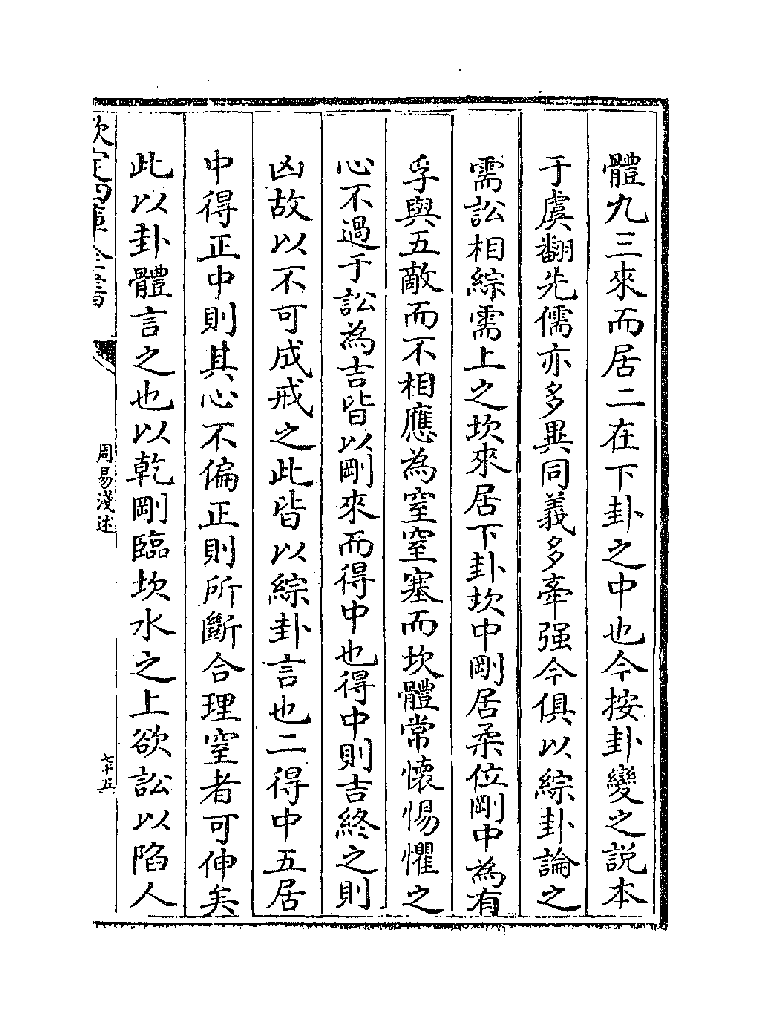 體九三來而居二在下卦之中也今按卦變之説本
于虞翻先儒亦多異同義多牽强今俱以綜卦論之
需訟相綜需上之坎來居下卦坎中剛居柔位剛中為有
孚與五敵而不相應為窒窒塞而坎體常懷惕懼之
心不過于訟為吉皆以剛來而得中也得中則吉終之則
凶故以不可成戒之此皆以綜卦言也二得中五居
中得正中則其心不偏正則所斷合理窒者可伸矣
此以卦體言之也以乾剛臨坎水之上欲訟以陷人
欽定四庫全書
周易淺述
七十五